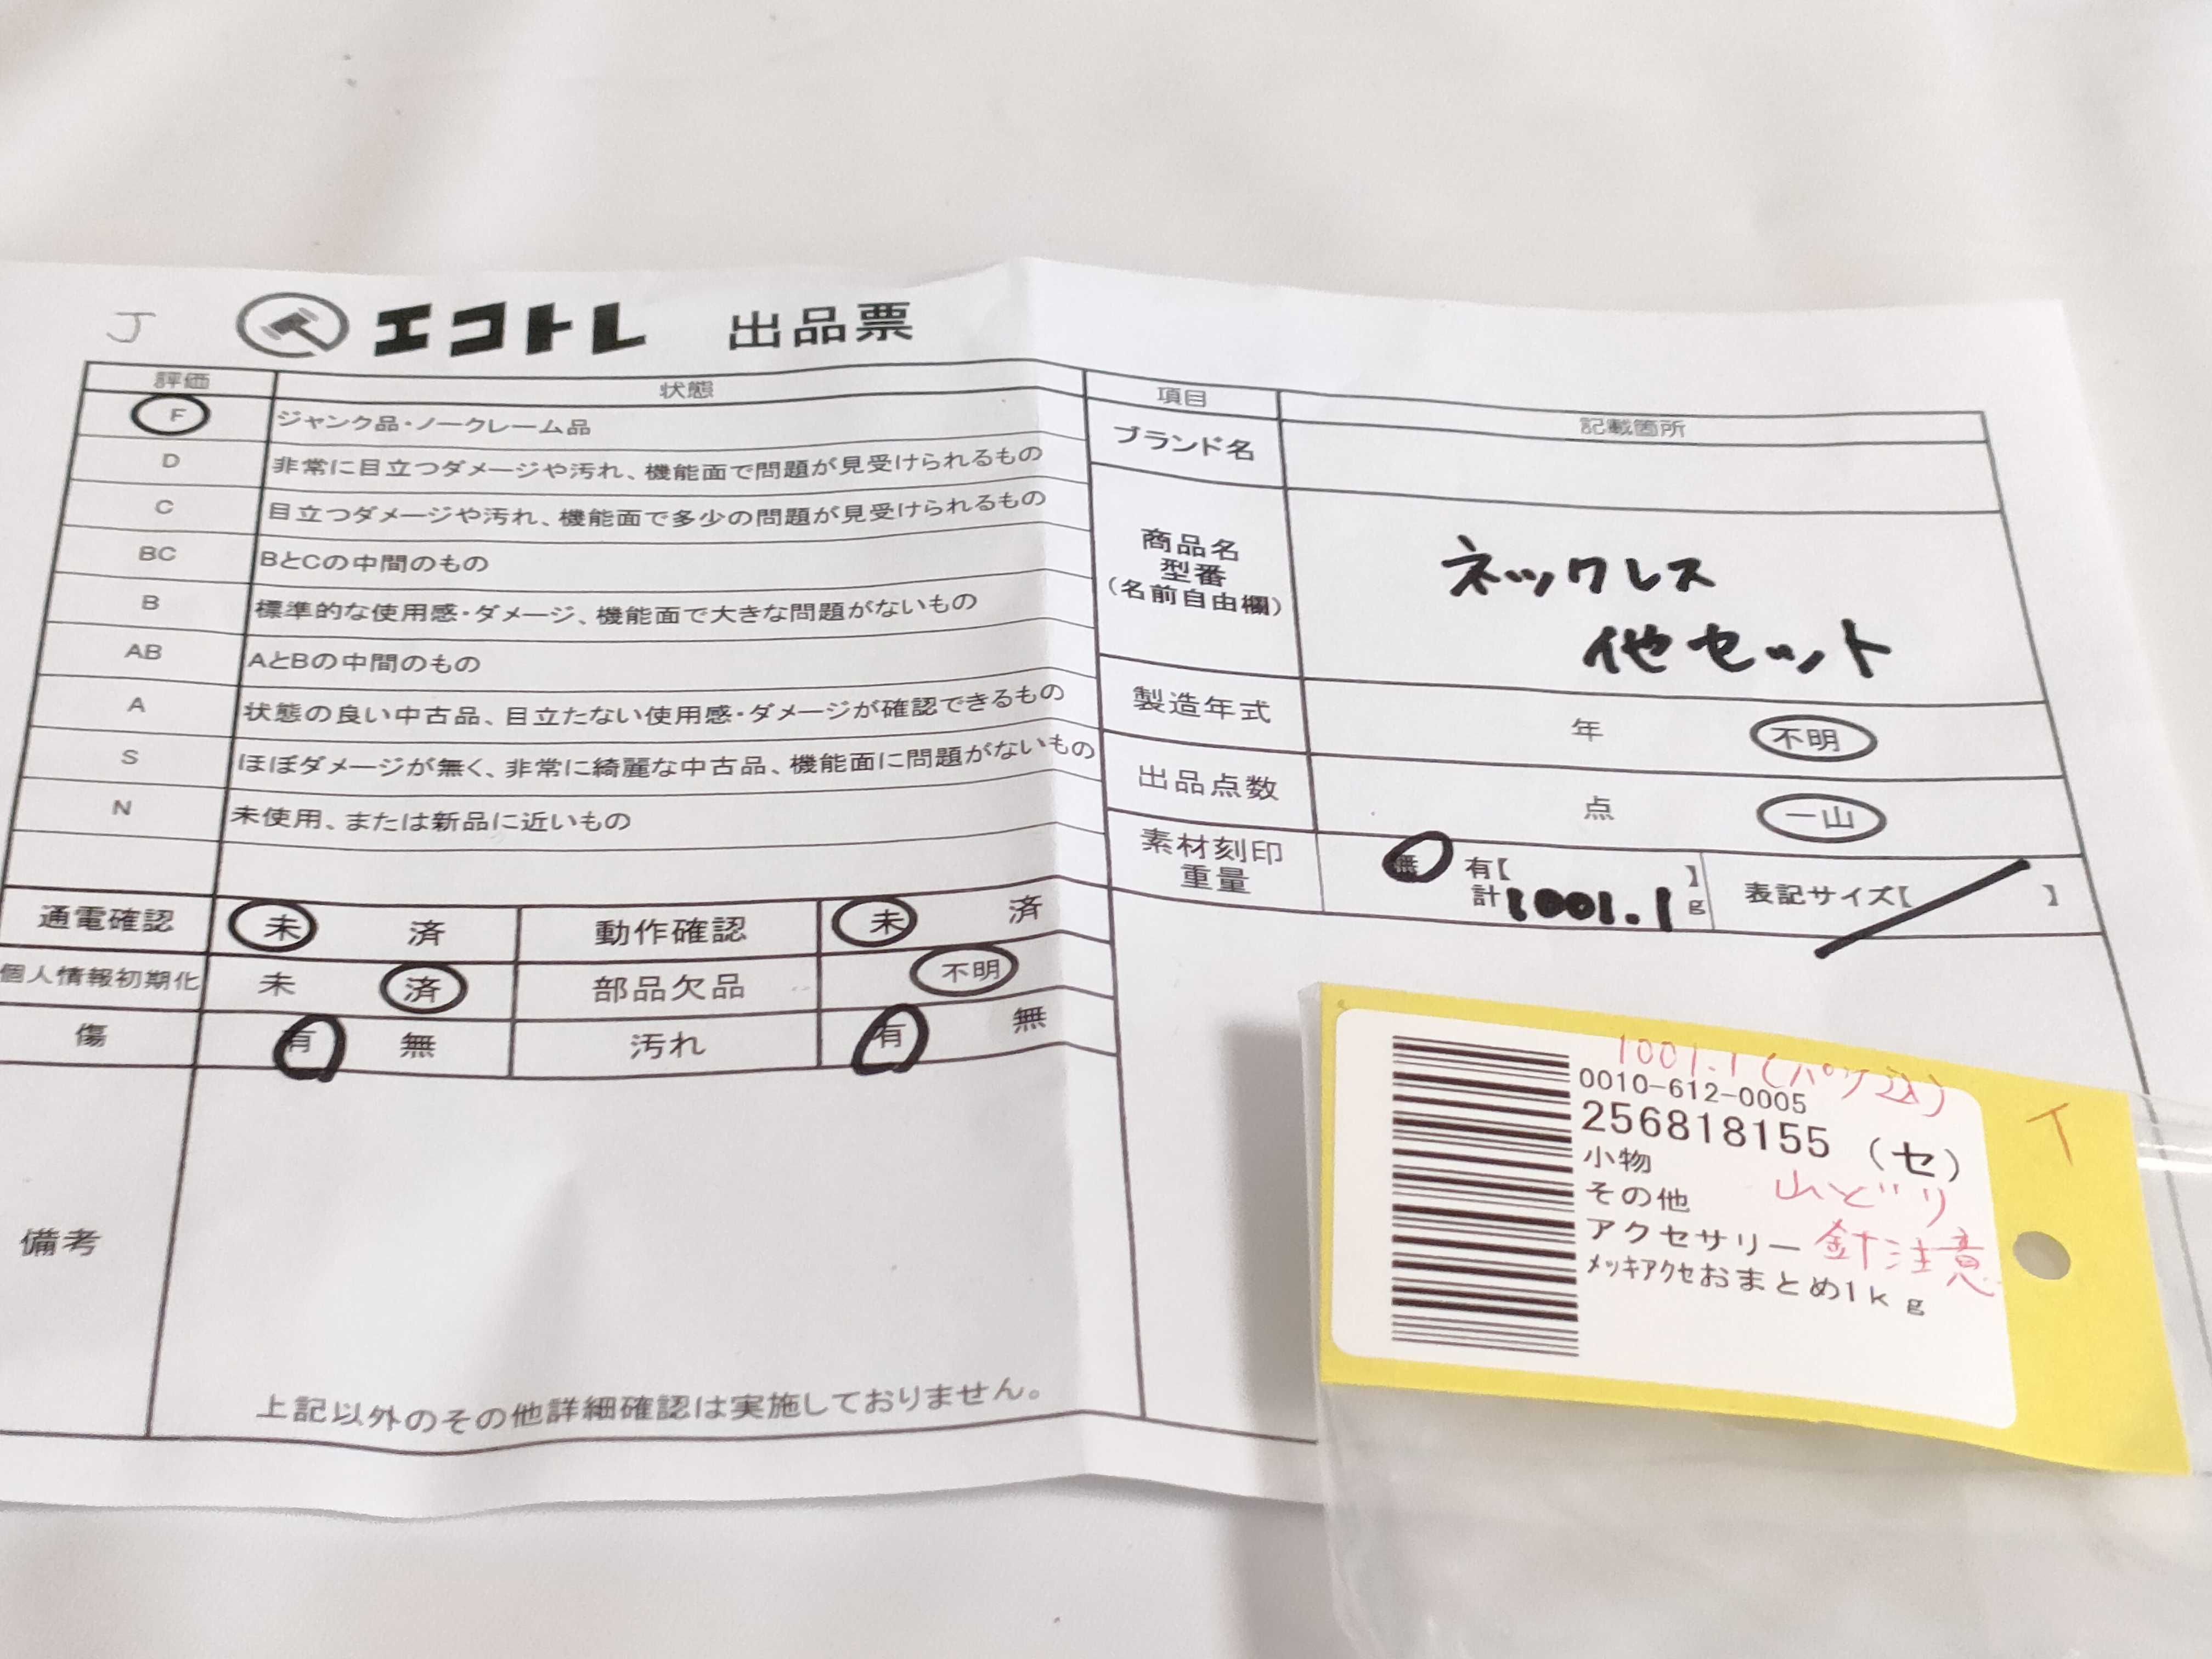 J エコトレ 出品票
評価 状態
F ジャンク品・ノークレーム品
D 非常に目立つダメージや汚れ、機能面で問題が見受けられるもの
C 目立つダメージや汚れ、機能面で多少の問題が見受けられるもの
BC BとCの中間のもの
B 標準的な使用感・ダメージ、機能面で大きな問題がないもの
AB AとBの中間のもの
A 状態の良い中古品、目立たない使用感・ダメージが確認できるもの
S ほぼダメージが無く、非常に綺麗な中古品、機能面に問題がないもの
N 未使用、または新品に近いもの
通電確認 未 済 動作確認 未 済
個人情報初期化 未 済 部品欠品 不明
傷 有 無 汚れ 有 無
備考
上記以外のその他詳細確認は実施しておりません。
項目 記載箇所
ブランド名
商品名
型番
(名前自由欄)
ネックレス
他セット
製造年式 年 不明
出品点数 点 一山
素材刻印
重量
無 有【 】
計1001.1g
表記サイズ【 】
1001.1(パケ込)
0010-612-0005
256818155 (セ)
小物
その他 山どり
アクセサリー 針注意
メッキアクセおまとめ1kg
イ